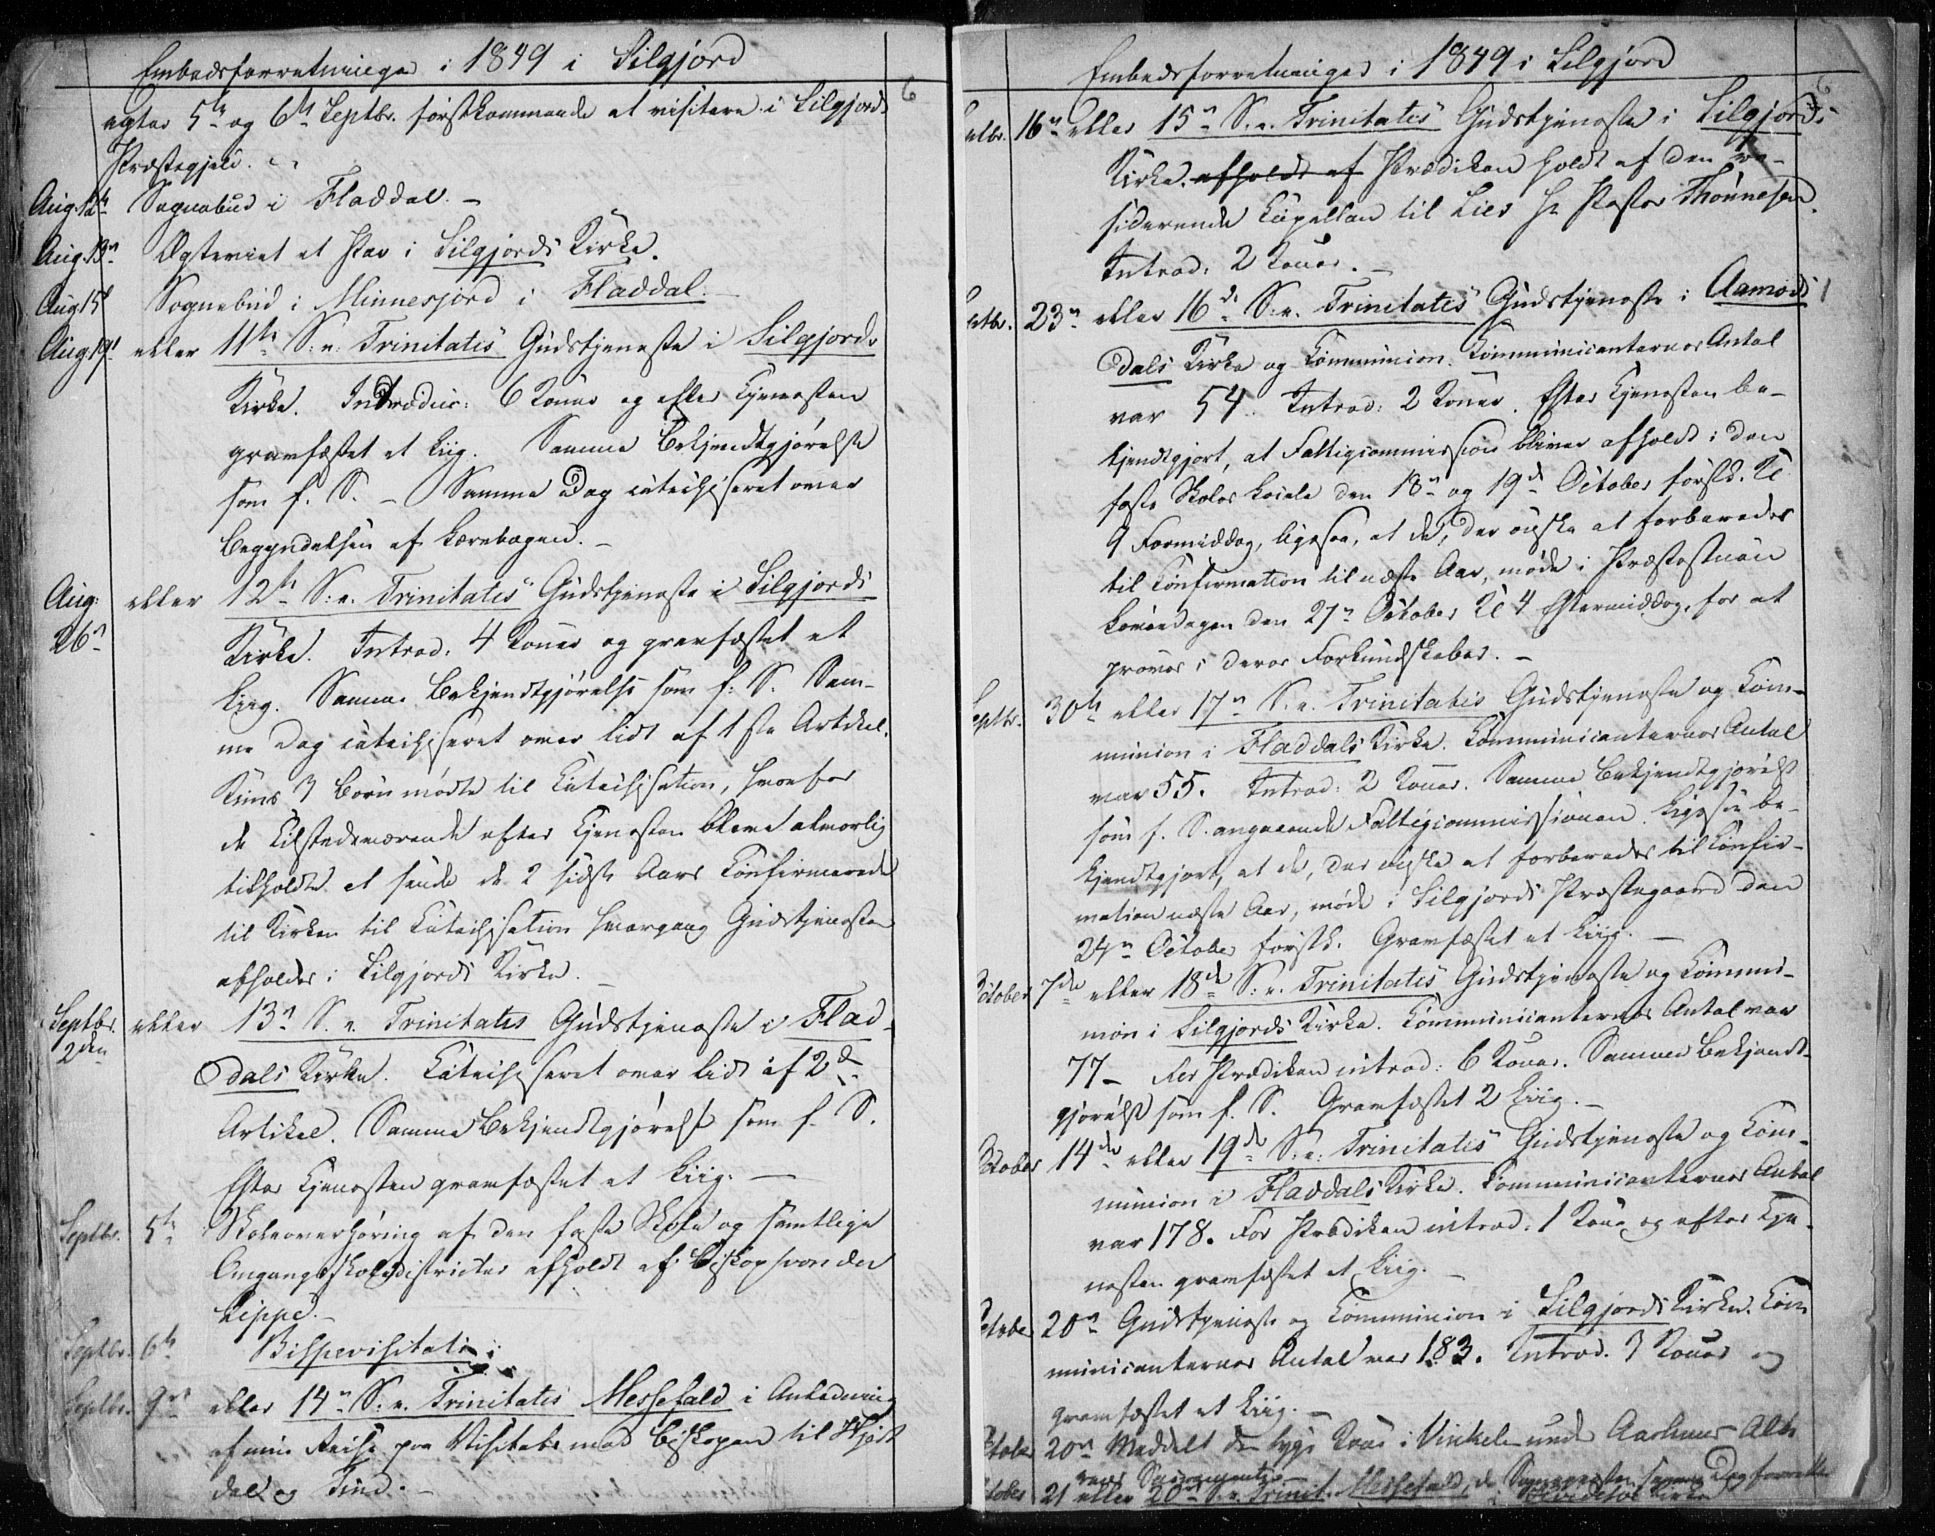 Embedsforretninger i 1849 i Silgjord
6
agter 5te og 6te Septbr. førstkommende at visitere i Silgjords
Præstegjeld.
Aug. 12te Sognebud i Fladdal. –
Aug. 13de Ægteviet et Par i Silgjords Kirke.
Aug 15de Sognebud i Minnesjord i Fladdal. –
Aug. 19de eller 11te S: e: Trinitatis Gudstjeneste i Silgjords
Kirke. Introduc: 6 Koner og efter Tjenesten
gravfæstet et Liig. Samme Bekjendtgjørelse
som f. S. – Samme Dag catechiseret over
Begyndelsen af Lærebogen. –
Aug: eller 12te S: e. Trinitatis Gudstjeneste i Silgjords
26de Kirke. Introd. 4 Koner og gravfæstet et
Liig. Samme Bekjendtgjørelse som f: S. Sam-
me Dag catechiseret over lidt af 1ste Artikel.
Kuns 3 Børn mødte til Catechisation, hvorfor
de Tilstedeværende efter Tjenesten bleve alvorlig
tilholdte at sende de 2 sidste Aars Confirmerede
til Kirken til Catechisation hvergang Gudstjenesten
afholdes i Silgjords Kirke. –
Septbr. eller 13de S. e. Trinitatis Gudstjeneste i Flad-
2den dals Kirke. Catechiseret over lidt af 2den
Artikel. Samme Bekjendtgjørelse som f. S.
Efter Tjenesten gravfæstet et Liig. –
Septbr. 5te Skoleoverhøring af den faste Skole og samtlige
Omgangsskoledistricter afholdt af Biskop von der
Lippe. –
Septbr. 6te Bispevisitats:
Septbr. 9de eller 14de S. e. Trinitatis Messefald i Anledning
af min Reise paa Visitats med Biskopen til Hjert
dal og Tind. –
Embedsforretninger i 1849 i Silgjord
6
Septbr. 16de eller 15de S. e. Trinitatis Gudstjeneste i Silgjords
Kirke. afholdt af Prædiken holdt af den re-
siderende Capellan til Lier Hr Pastor Thønnesen.
Introd. 2 Koner. –
Septbr. 23de eller 16de S: e. Trinitatis Gudstjeneste i Aamods
dals Kirke og Communion. Communicanternes Antal
var 54. Introd: 2 Koner. Efter Tjenesten be-
kjendtgjort, at Fattigcommission bliver afholdt i den
faste Skoles Locale den 18de og 19de October førstk. Kl
9 Formiddag, ligesaa, at de, der ønske at forberedes
til Confirmation til næste Aar, møde i Præstestuen
Løverdagen den 27de October Kl 4 Eftermiddag, for at
prøves i deres Forkundskaber. –
Septbr. 30te eller 17de S. e. Trinitatis Gudstjeneste og Com-
munion i Fladdals Kirke. Communicanternes Antal
var 55. Introd: 2 Koner. Samme Bekjendtgjørelse
som f. S. angaaende Fattigcommissionen. Ligesaa be-
kjendtgjort, at de, der ønske at forberedes til Confir-
mation næste Aar, møde i Silgjords Præstegaard den
24de October førstk. Gravfæstet et Liig. –
October 7de eller 18de S: e. Trinitatis Gudstjeneste og Commu-
nion i Silgjords Kirke. Communicanternes Antal var
77 – Før Prædiken introd: 6 Koner. Samme Bekjendt-
gjørelse som f. S. Gravfæstet 2 Liig. –
October 14de eller 19de S: e: Trinitatis Gudstjeneste og Com-
munion i Fladdals Kirke. Communicanternes Antal
var 178. Før Prædiken introd. 1 Kone og efter Tje-
nesten gravfæstet et Liig. –
October 20de Gudstjeneste og Communion i Silgjords Kirke. Com
municanternes Antal var 183. Introd. 3 Koner og
gravfæstet et Liig. –
October 20de Meddelt den syge Kone i Vinkelen under Aarhuus Alte
rens Sacramente –
October 21 eller 20de S. e. Trinit. Messefald, da Sognepræsten samme Dag forrettede
Kirke